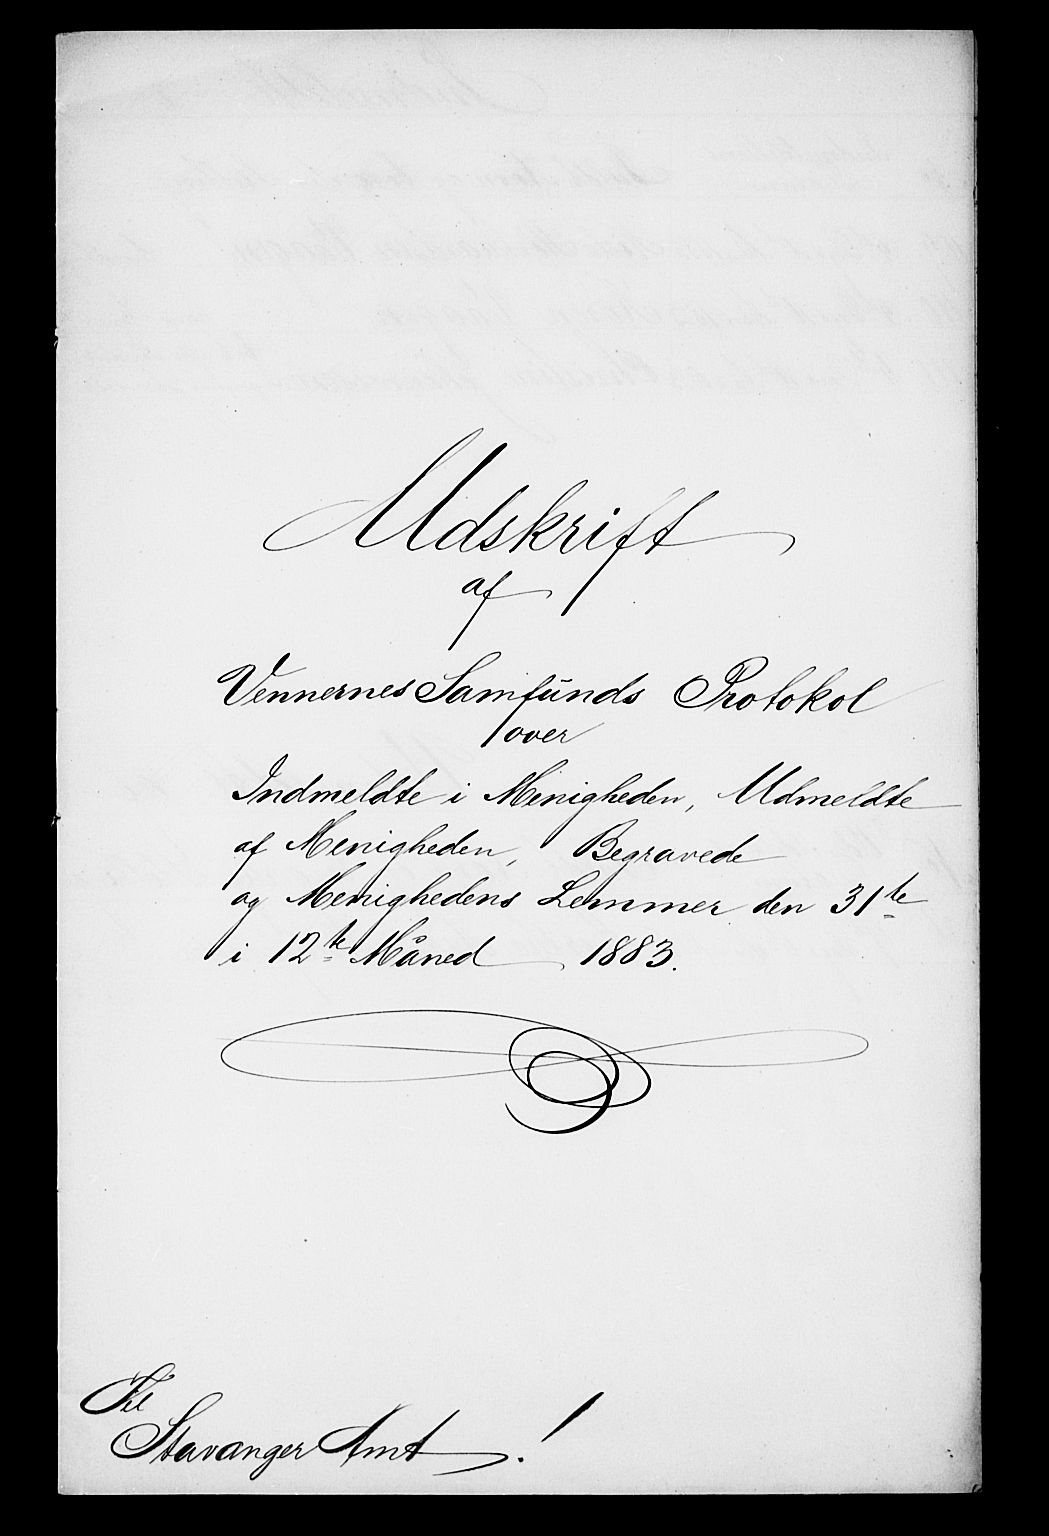 Udskrift
af
Vennernes Samfunds Protokol
over
Indmeldte i Menigheden, Udmeldte
af Menigheden, Begravede
og Menighedens Lemmer den 31te
i 12te Måned 1883.
Til
Stavanger Amt!